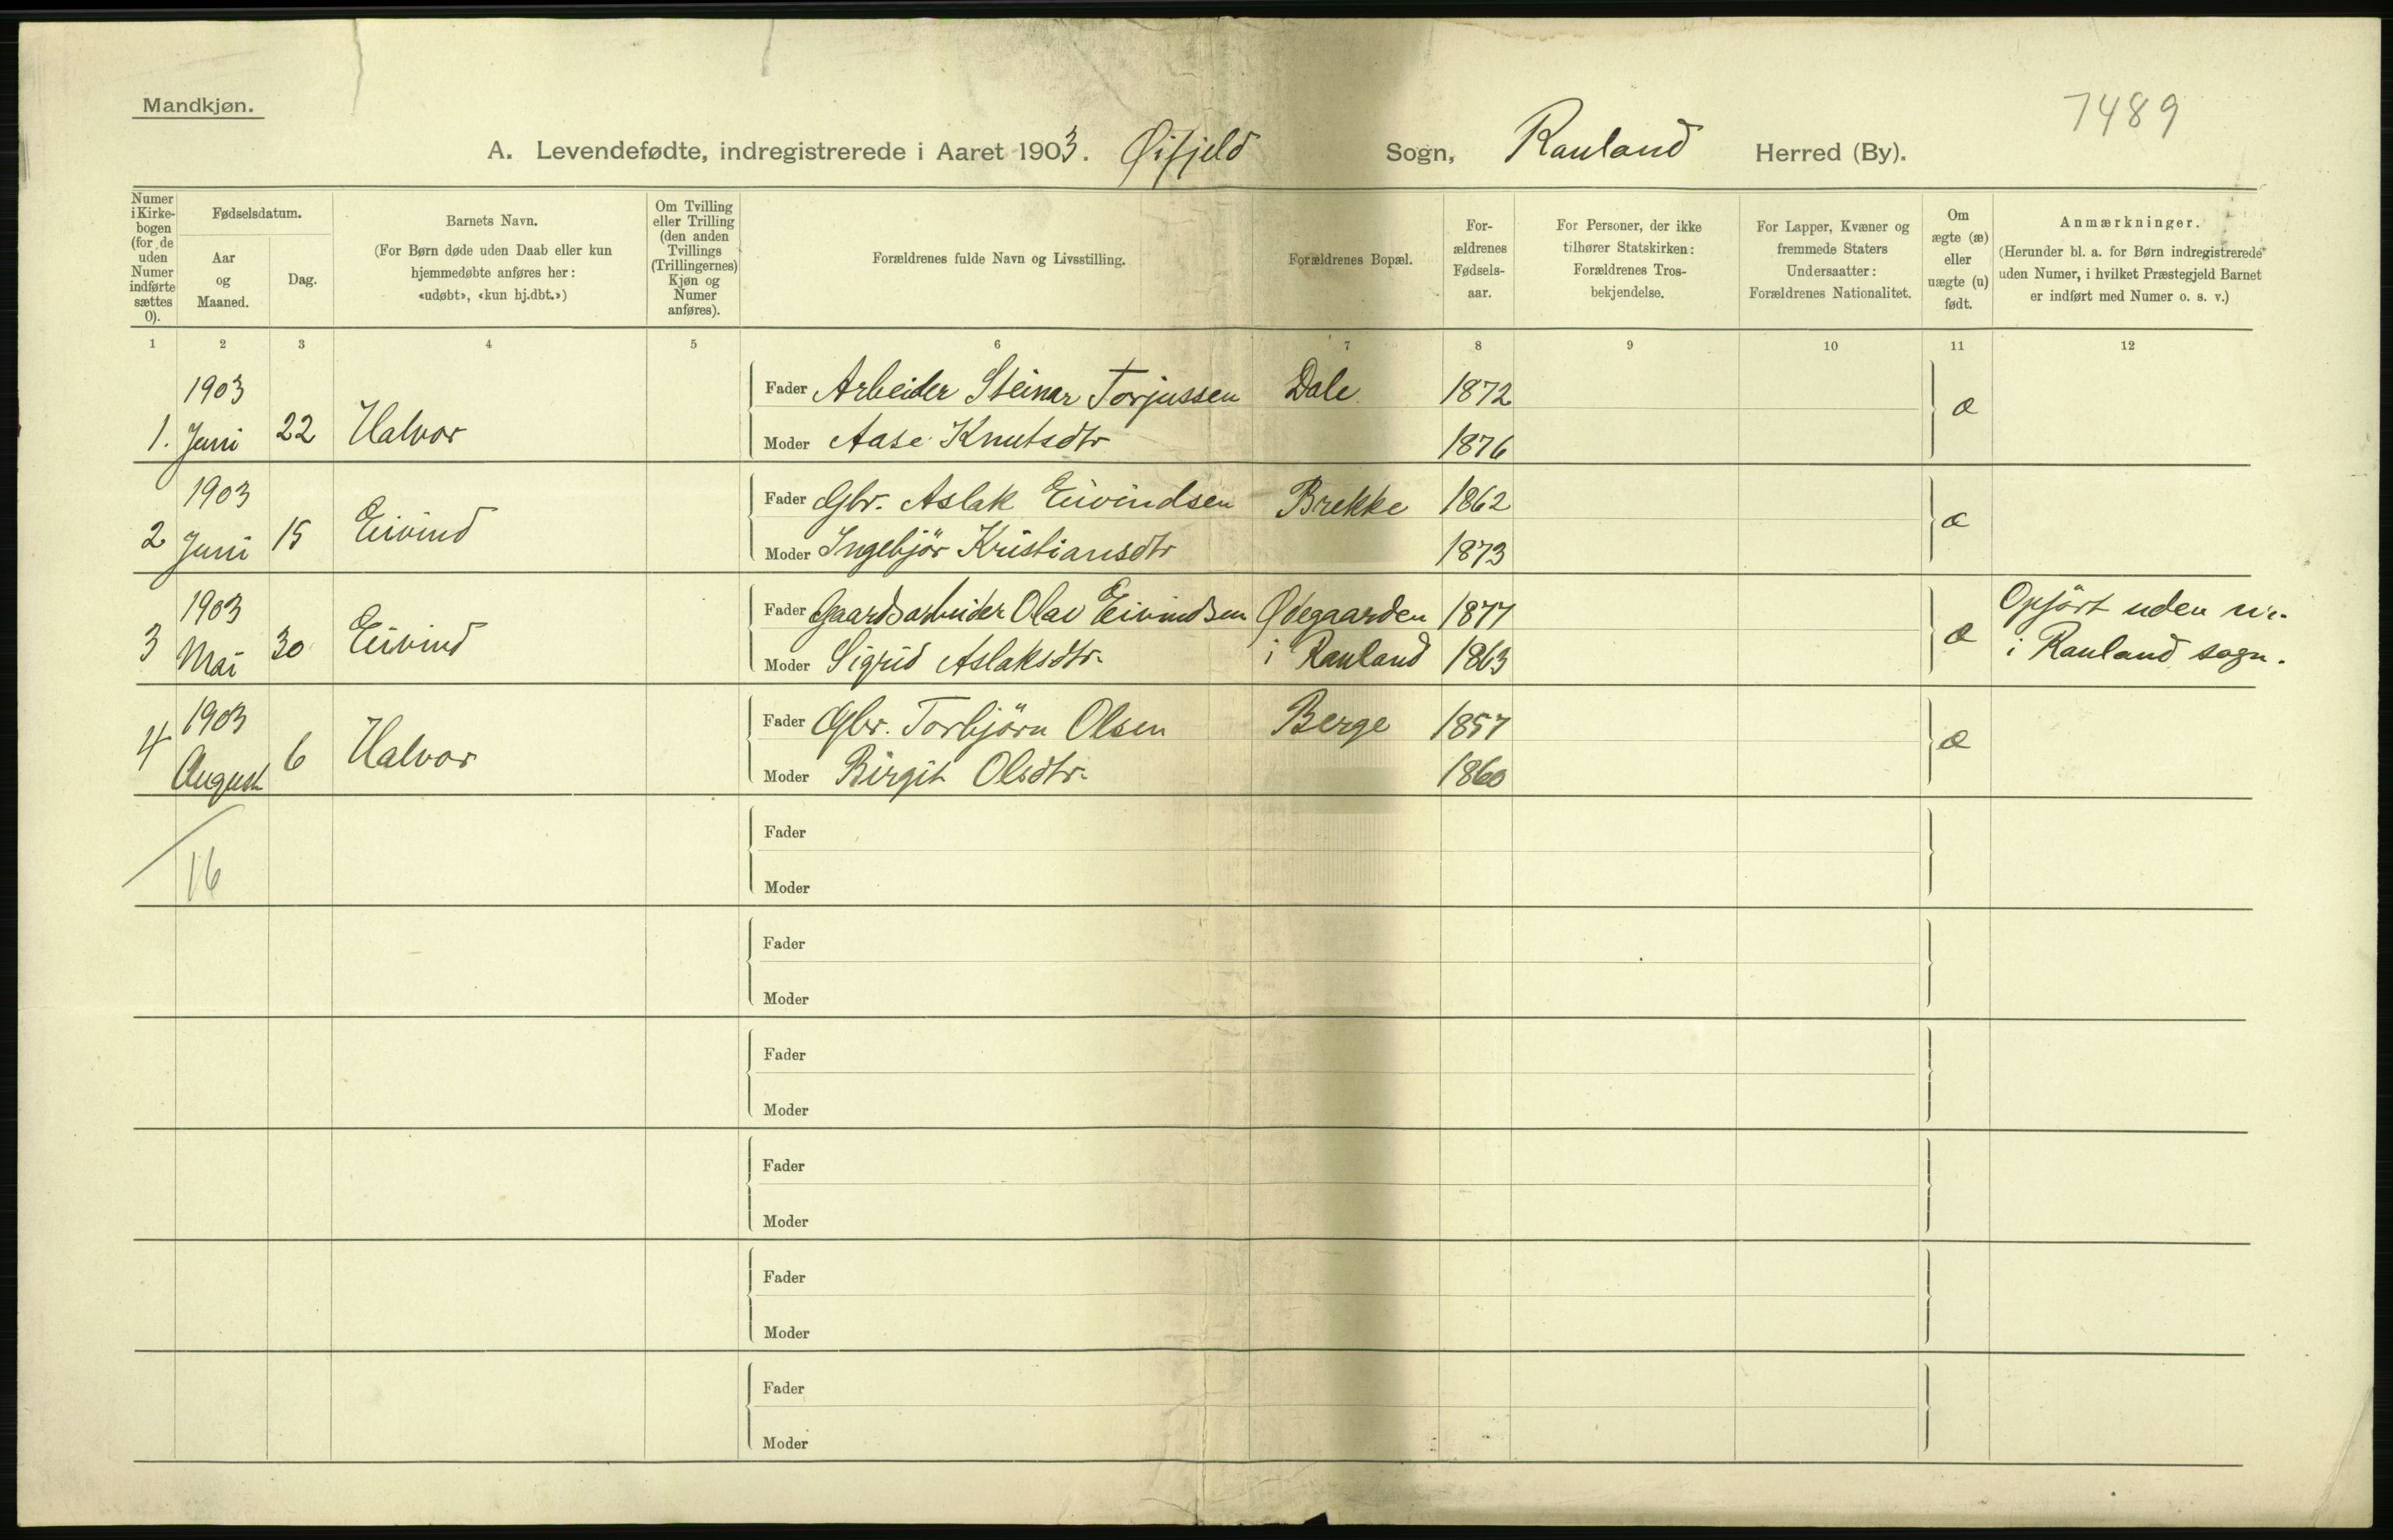 Mandkjøn.
7489
A. Levendefødte, indregistrerede i Aaret 1903. Øifjeld Sogn, Rauland Herred (By).
Numer i Kirkebogen (for de uden Numer indførte sættes 0).
Fødselsdatum.
Aar og Maaned.
Dag.
Barnets Navn.
(For Børn døde uden Daab eller kun hjemmedøbte anføres her: «udøbt», «kun hj.dbt.»)
Om Tvilling eller Trilling (den anden Tvillings (Trillingernes) Kjøn og Numer anføres).
Forældrenes fulde Navn og Livsstilling.
Forældrenes Bopæl.
Forældrenes Fødselsaar.
For Personer, der ikke tilhører Statskirken: Forældrenes Trosbekjendelse.
For Lapper, Kvæner og fremmede Staters Undersaatter: Forældrenes Nationalitet.
Om ægte (æ) eller uægte (u) født.
Anmærkninger.
(Herunder bl. a. for Børn indregistrerede uden Numer, i hvilket Præstegjeld Barnet er indført med Numer o. s. v.)
1 2 3 4 5 6 7 8 9 10 11 12
1903 Fader Arbeider Steinar Torjussen Dale 1872 æ
1. Juni 22 Halvor Moder Aase Knutsdtr 1876
1903 Fader Gbr. Aslak Eivindsen Brekke 1862 æ
2 Juni 15 Eivind Moder Ingebjör Kristiansdtr 1873
1903 Fader Gaardsarbeider Olav Eivindsen Ødegaarden 1877 æ Opført uden nr.
3 Mai 30 Eivind Moder Sigrid Aslaksdtr. i Rauland 1863 i Rauland sogn.
1903 Fader Gbr. Torbjörn Olsen Berge 1857 æ
4 August 6 Halvor Moder Birgit Olsdtr. 1860
Fader
16
Moder
Fader
Moder
Fader
Moder
Fader
Moder
Fader
Moder
Fader
Moder